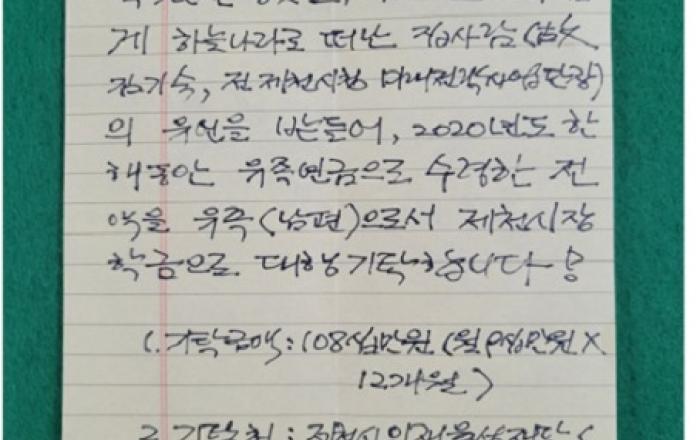 게 하늘나라로 떠난 집사람(故
김기숙, 전 제천시청 미래전략사업단장)
의 유언을 받들어, 2020년도 한
해동안 유족연금으로 수령한 전
액을 유족(남편)으로서 제천시장
학금으로 대행기탁합니다!
1. 기탁금액: 1080만원 (월 90만원 ×
12개월)
2. 기탁처: 제천시인재육성재단(